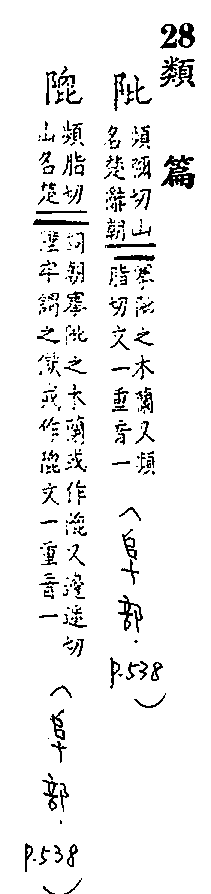 28類篇
阰
頻彌切山
名楚辭朝
搴阰之木蘭又頻
脂切文一重音一
(阜部.
p.538)
頻脂切
山名楚
詞朝搴阰之木蘭或作又邊迷切
牢謂之獄或作文一重音一
(阜部.
p.538)